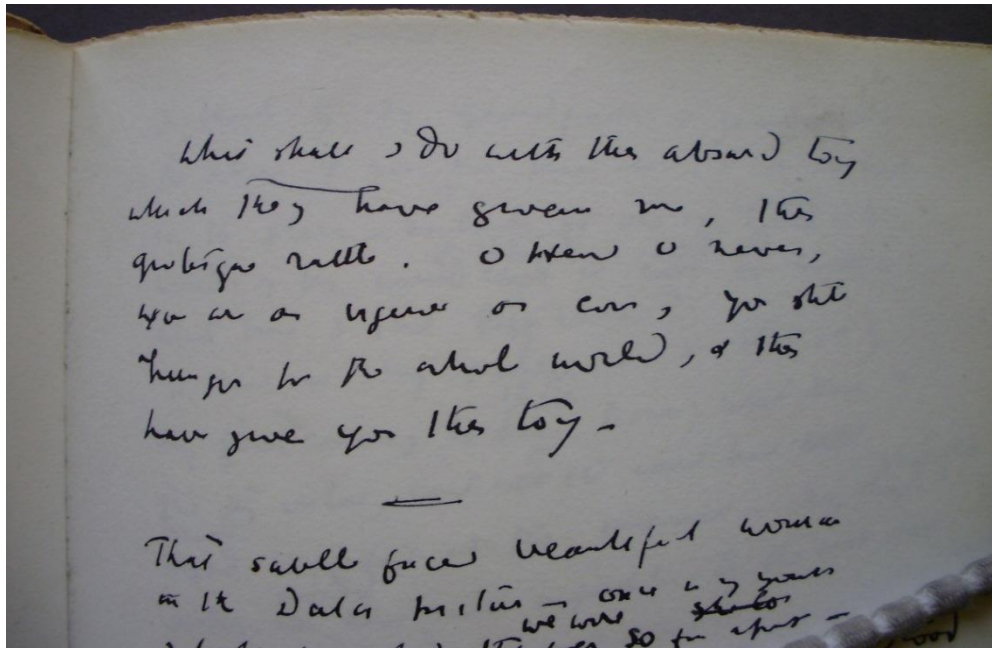 What shall I do with this absurd toy
which they have given me, this
grotesque rattle. O Heart O nerves,
you are as vigorous as ever, you still
hunger for the whole world, & they
have given you this toy –
That subtle faced beautiful woman
in the Dulac picture – once in my
we were
so far apart –